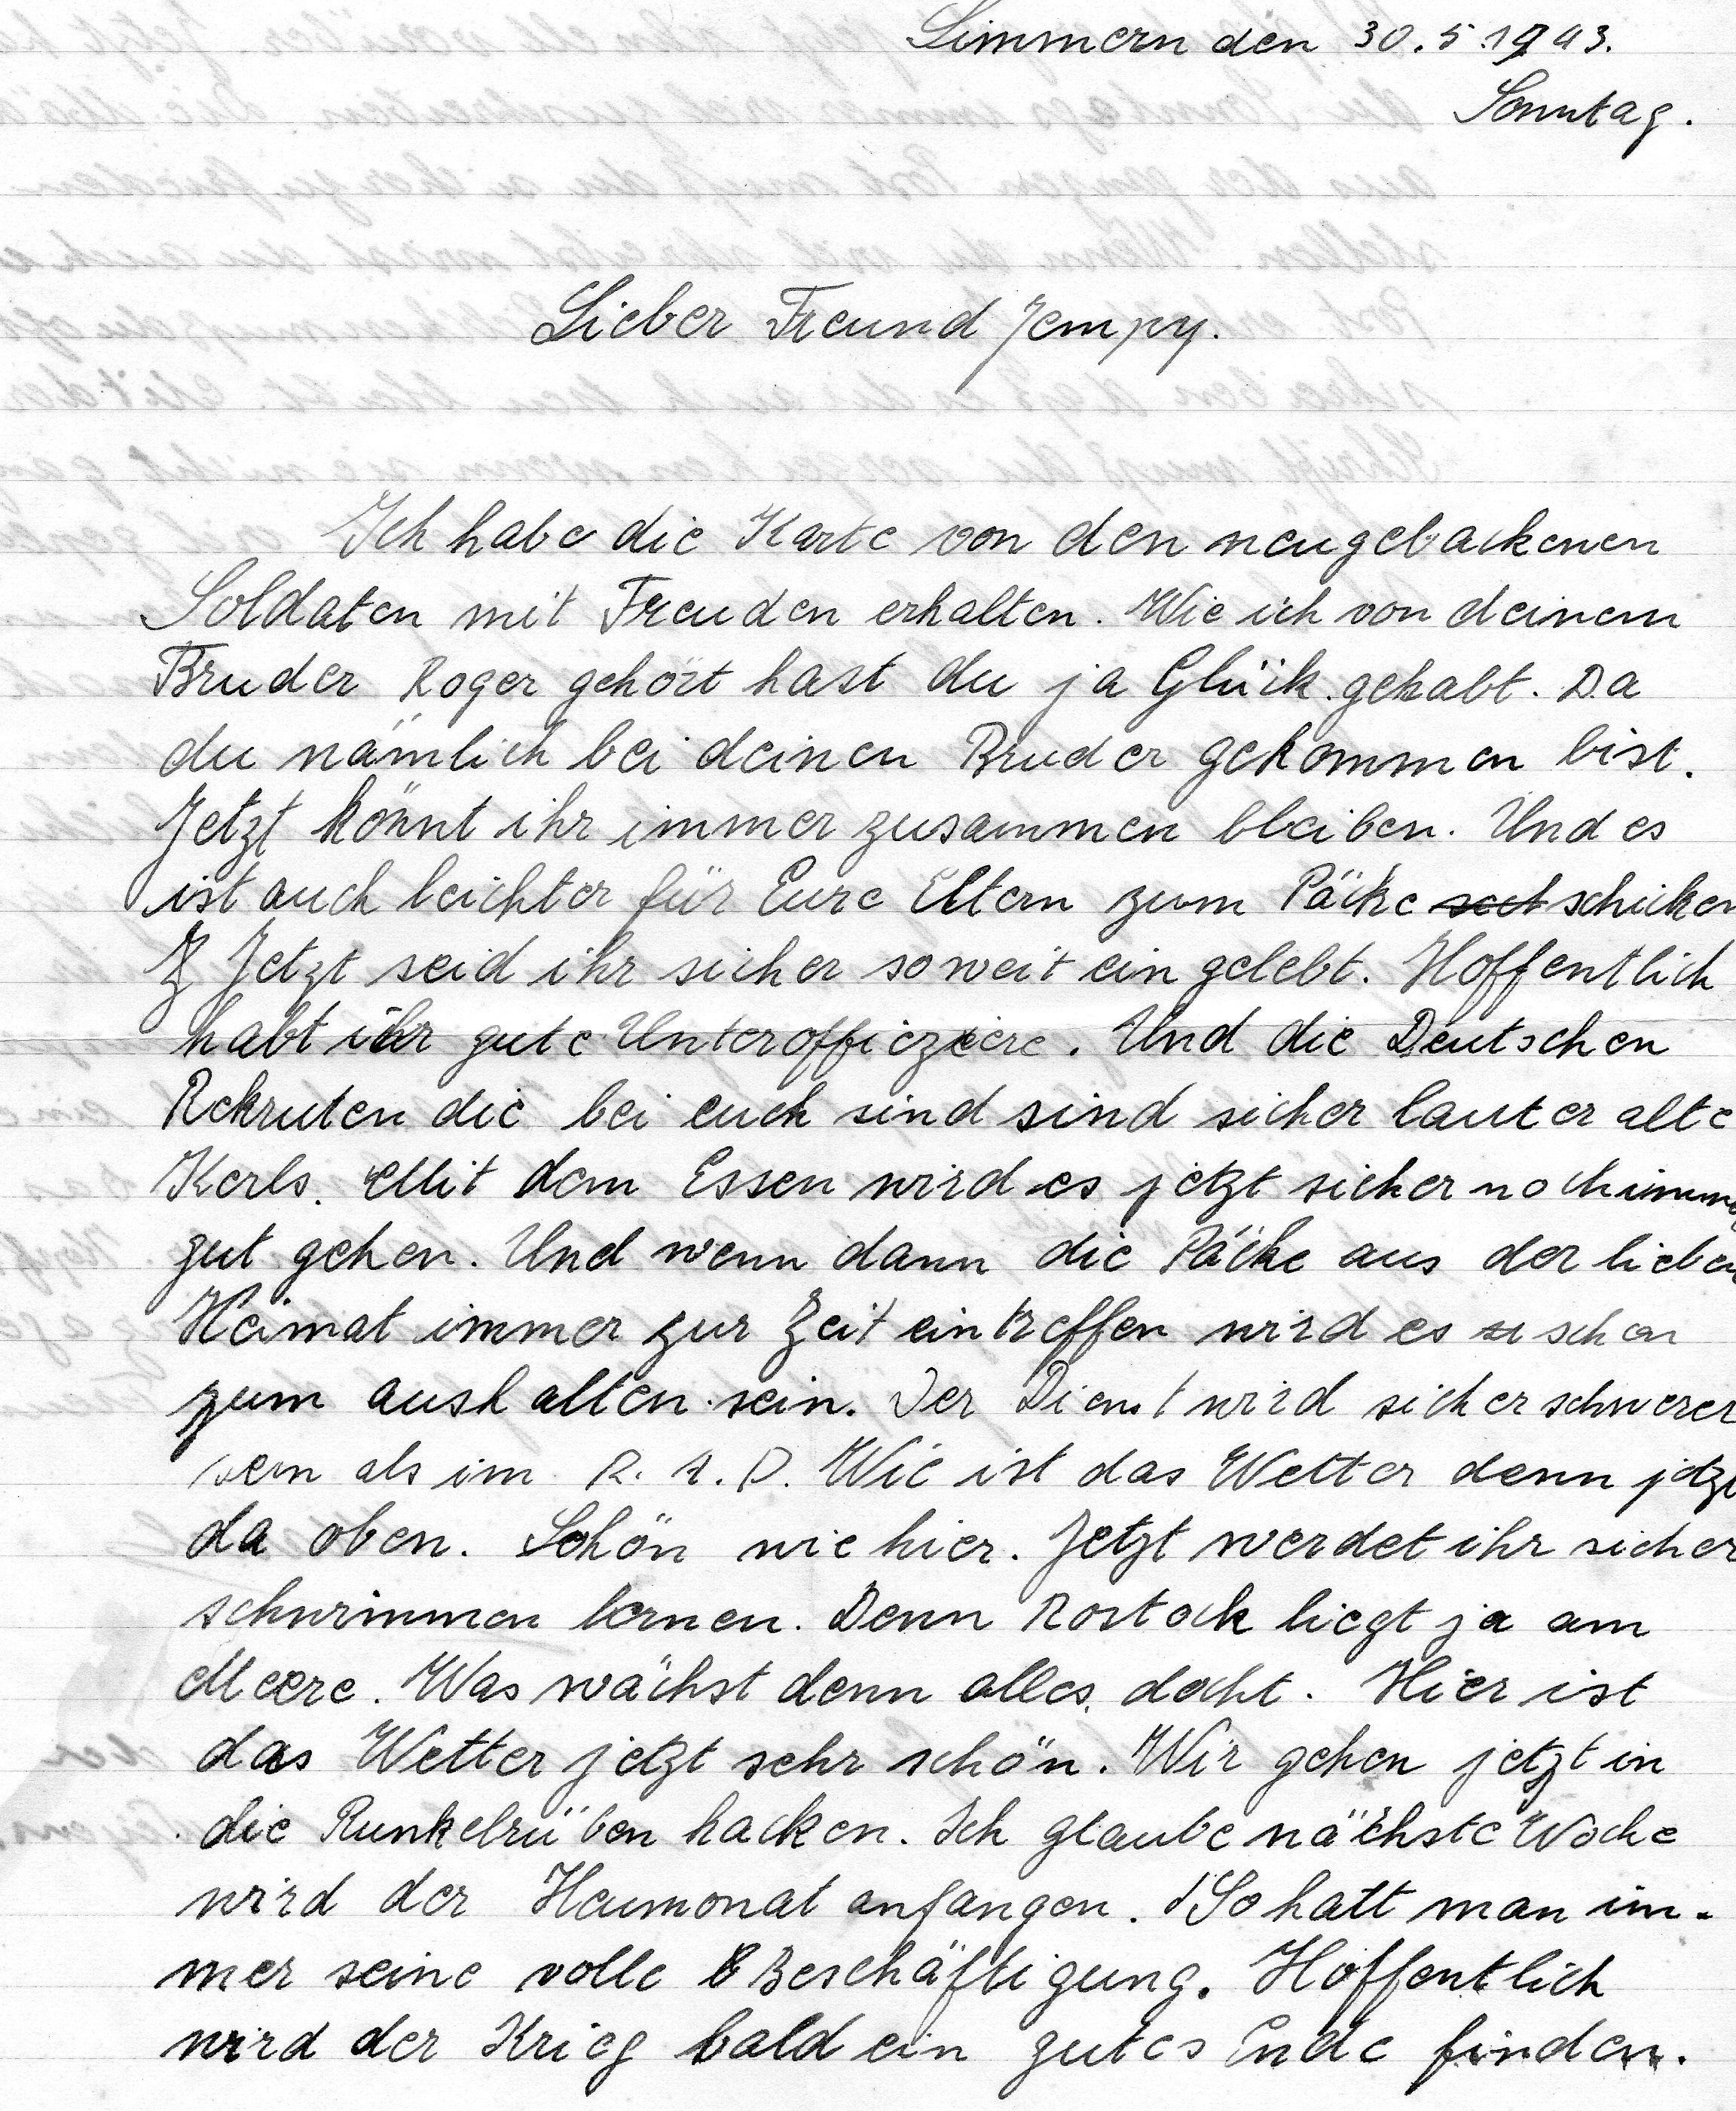 Simmern den 30.5.1943.
Sonntag.
Lieber Freund Jempy.
Ich habe die Karte von den neugebackenen
Soldaten mit Freuden erhalten. Wie ich von deinem
Bruder Roger gehört hast du ja Glück gehabt. Da
du nämlich bei deinen Bruder gekommen bist.
Jetzt könnt ihr immer zusammen bleiben. Und es
ist auch leichter für Eure Eltern zum Päcke schicken
Jetzt seid ihr sicher soweit eingelebt. Hoffentlich
habt ihr gute Unterofficziere. Und die Deutschen
Rekruten die bei euch sind sind sicher lauter alte
Kerls. Mit dem Essen wird es jetzt sicher noch immer
gut gehen. Und wenn dann die Päcke aus der lieben
Heimat immer zur Zeit eintreffen wird es schon
zum aushalten sein. Der Dienst wird sicher schwerer
sein als im R. A. D. Wie ist das Wetter denn jetzt
da oben. Schön wie hier. Jetzt werdet ihr sicher
schwimmen lernen. Denn Rostock liegt ja am
Meere. Was wächst denn alles docht. Hier ist
das Wetter jetzt sehr schön. Wir gehen jetzt in
die Runkelrüben hacken. Ich glaube nächste Woche
wird der Heumonat anfangen. So hatt man im-
mer seine volle Beschäftigung. Hoffentlich
wird der Krieg bald ein gutes Ende finden.